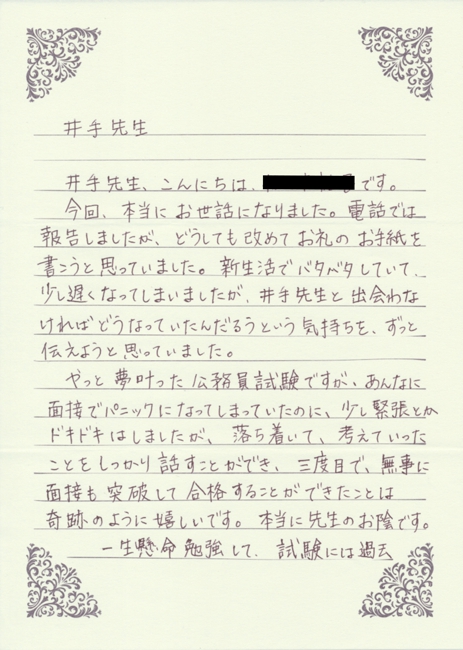 井手先生
井手先生、こんにちは、です。
今回、本当にお世話になりました。電話では
報告しましたが、どうしても改めてお礼のお手紙を
書こうと思っていました。新生活でバタバタしていて、
少し遅くなってしまいましたが、井手先生と出会わな
ければどうなっていたんだろうという気持ちを、ずっと
伝えようと思っていました。
やっと夢叶った公務員試験ですが、あんなに
面接でパニックになってしまっていたのに、少し緊張とか
ドキドキはしましたが、落ち着いて、考えていった
ことをしっかり話すことができ、三度目で、無事に
面接も突破して合格することができたことは
奇跡のように嬉しいです。本当に先生のお陰です。
一生懸命勉強して、試験には過去